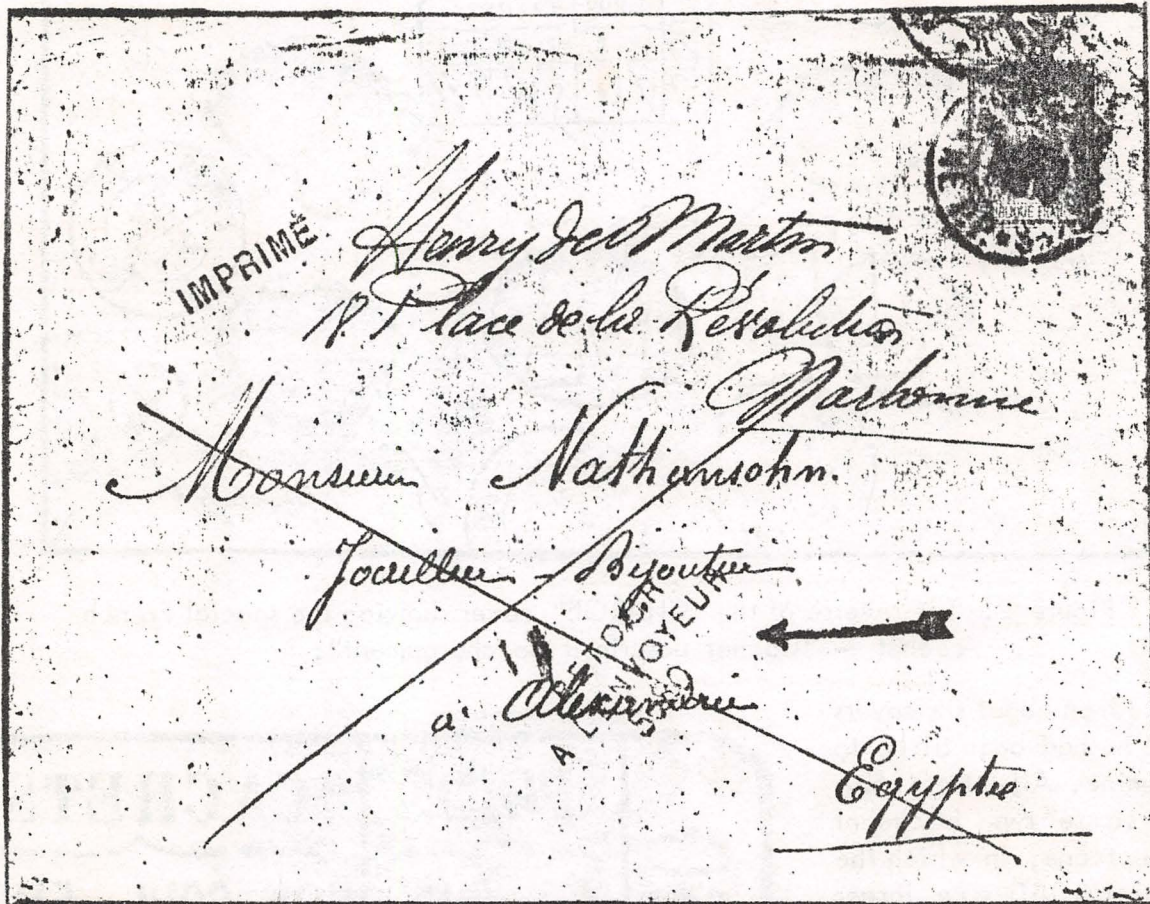 IMPRIMÉ
Henry de Martin
18. Place de la Révolution
Narbonne
Monsieur Nathansohn.
Joaillier - Bijoutier
RETOUR
A L'ENVOYEUR
à Alexandrie
Egypte